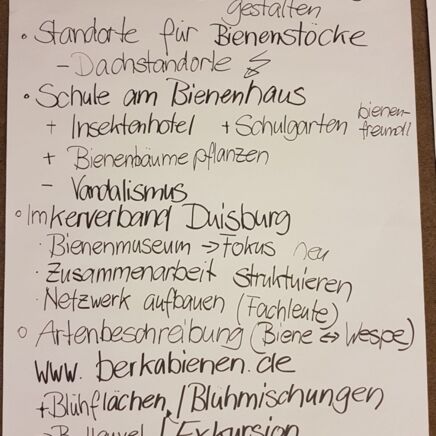 gestalten
◦ Standorte für Bienenstöcke
- Dachstandorte
◦ Schule am Bienenhaus
+ Insektenhotel + Schulgarten bienen-
freundl
+ Bienenbäume pflanzen
- Vandalismus
◦ Imkerverband Duisburg
· Bienenmuseum → Fokus neu
· Zusammenarbeit strukturieren
· Netzwerk aufbauen (Fachleute)
◦ Artenbeschreibung (Biene ↔ Wespe)
www. berkabienen.de
+ Blühflächen / Blühmischungen
/ Exkursion